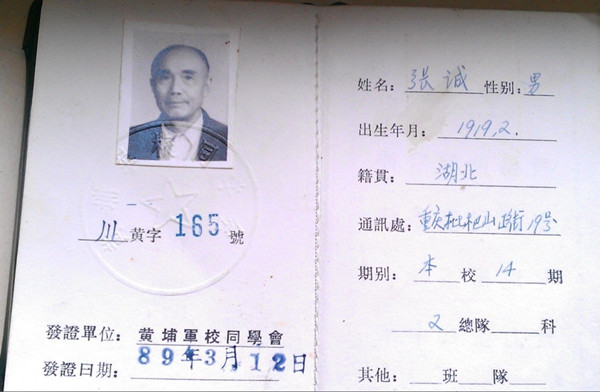 川 黄字 165 號
發證單位: 黄埔軍校同學會
發證日期: 89年3月12日
姓名: 張诚 性别: 男
出生年月: 1919.2.
籍貫: 湖北
通訊處: 重庆枇杷山正街19号
期别: 本 校 14 期
2 總隊 科
其他: 班 隊